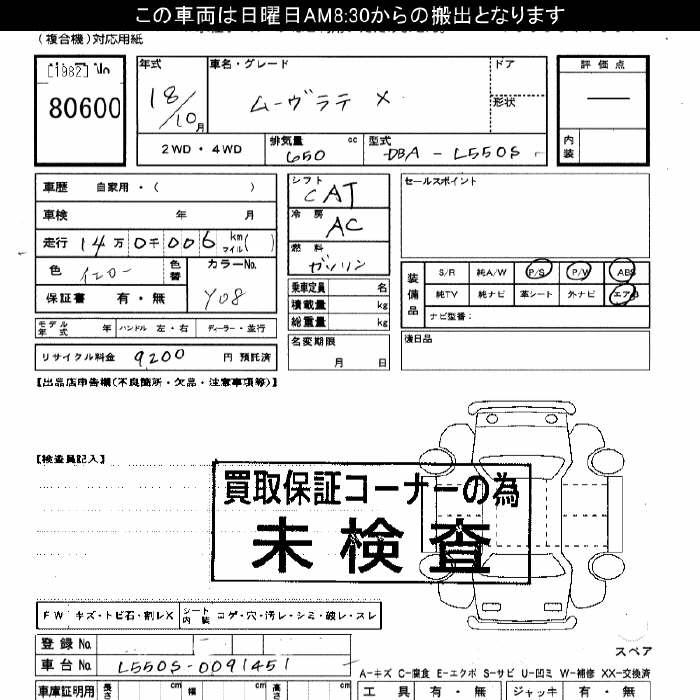 この車両は日曜日AM8:30からの搬出となります
(複合機)対応用紙
[1982] No
80600
年式
18/10月
車名・グレード
ムーヴラテ X
ドア
形状
評価点
—
内装
2WD・4WD
排気量 cc
650
型式
DBA-L550S
車歴 自家用・( )
車検 年 月
走行 14万0千006 km マイル( )
色 イエロー 色替
カラーNo.
Y08
保証書 有・無
モデル年式 年 ハンドル 左・右 ディーラー・並行
リサイクル料金 9200 円 預託済
シフト
CAT
冷房
AC
燃料
ガソリン
乗車定員 名
積載量 kg
総重量 kg
名変期限
月 日
セールスポイント
装備品
S/R 純A/W P/S P/W ABS
純TV 純ナビ 革シート 外ナビ エアB
ナビ型番:
後日品
【出品店申告欄(不良箇所・欠品・注意事項等)】
【検査員記入】
買取保証コーナーの為
未検査
FW キズ・トビ石・割レX シート内装 コゲ・穴・汚レ・シミ・破レ・スレ
登録No.
車台No. L550S-0091451
スペア
A-キズ C-腐食 E-エクボ S-サビ U-凹ミ W-補修 XX-交換済
車庫証明用 長さ cm 幅 cm 高さ cm
工具 有・無 ジャッキ 有・無